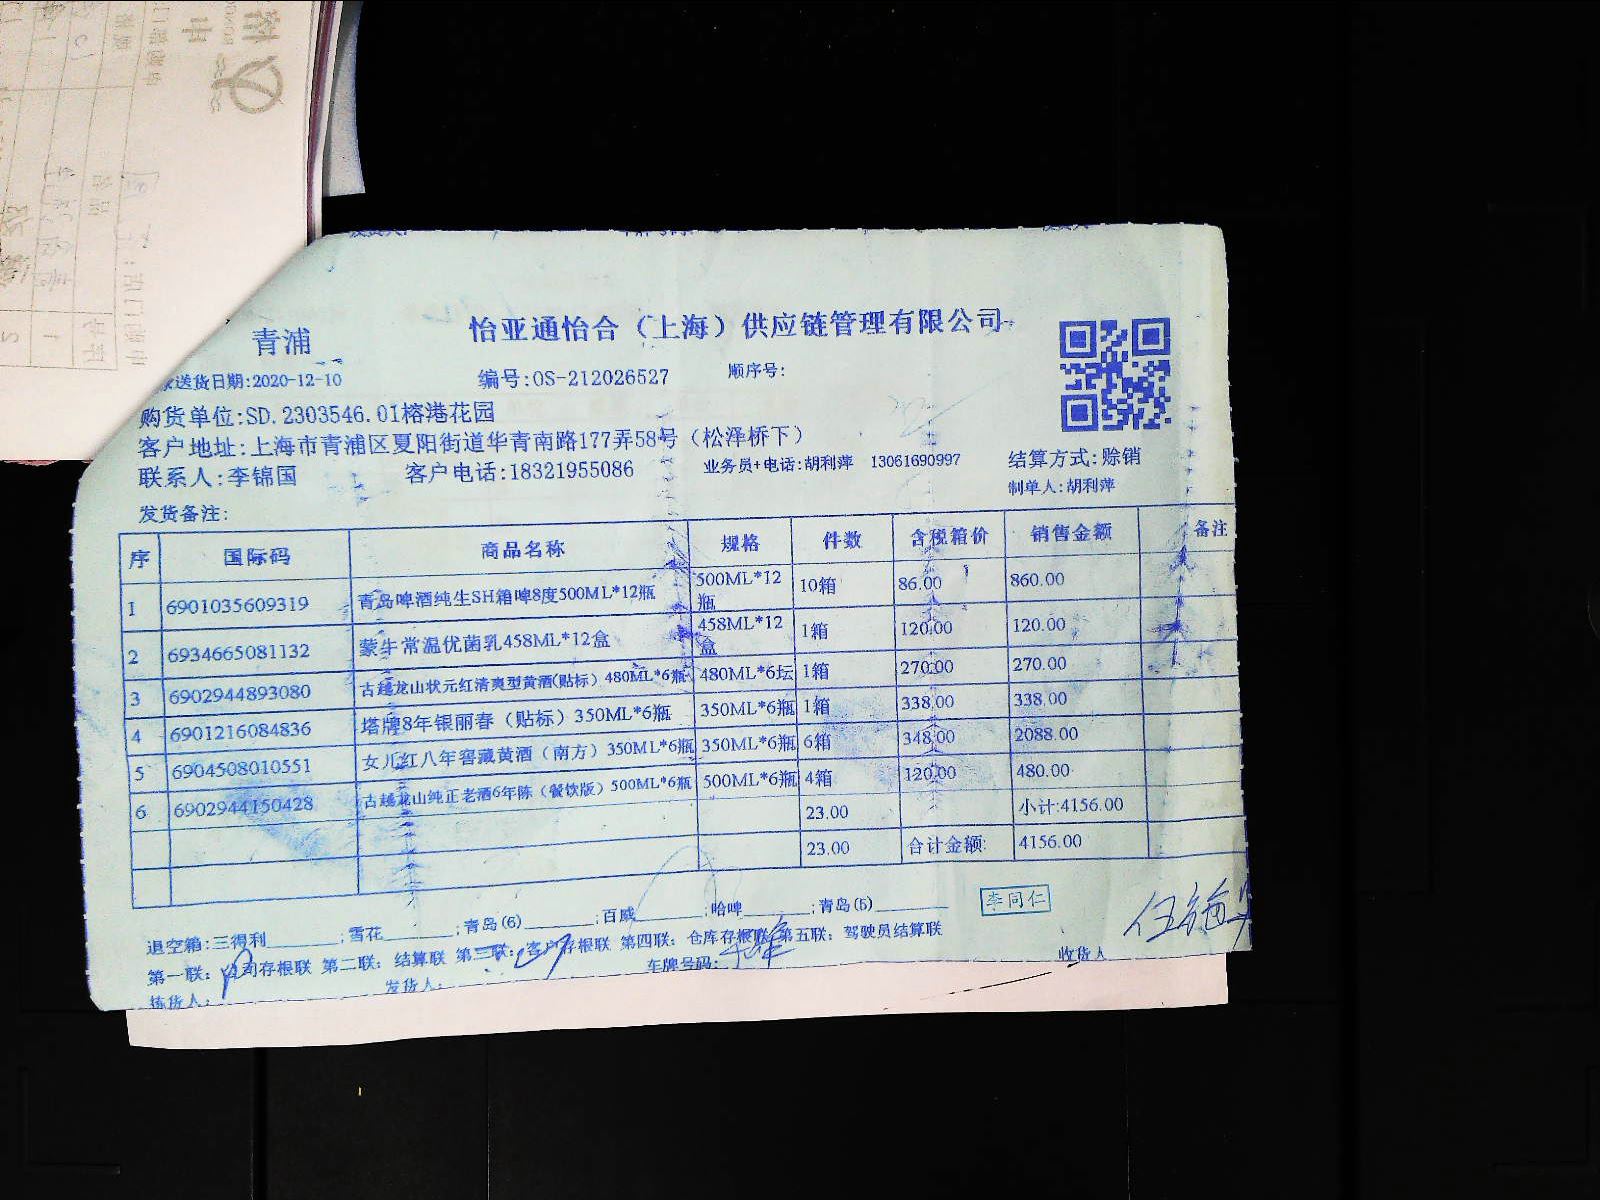 怡亚通怡合（上海）供应链管理有限公司
青浦
送货日期:2020-12-10 编号:OS-212026527 顺序号:
购货单位:SD.2303546.01榕港花园
客户地址:上海市青浦区夏阳街道华青南路177弄58号（松泽桥下）
联系人:李锦国 客户电话:18321955086 业务员+电话:胡利萍 13061690997 结算方式:赊销
制单人:胡利萍
发货备注:
序 国际码 商品名称 规格 件数 含税箱价 销售金额 备注
1 6901035609319 青岛啤酒纯生SH箱啤8度500ML*12瓶 500ML*12瓶 10箱 86.00 860.00
2 6934665081132 蒙牛常温优菌乳458ML*12盒 458ML*12盒 1箱 120.00 120.00
3 6902944893080 古越龙山状元红清爽型黄酒(贴标）480ML*6瓶 480ML*6坛 1箱 270.00 270.00
4 6901216084836 塔牌8年银丽春（贴标）350ML*6瓶 350ML*6瓶 1箱 338.00 338.00
5 6904508010551 女儿红八年窖藏黄酒（南方）350ML*6瓶 350ML*6瓶 6箱 348.00 2088.00
6 6902944150428 古越龙山纯正老酒6年陈（餐饮版）500ML*6瓶 500ML*6瓶 4箱 120.00 480.00
23.00 小计:4156.00
23.00 合计金额: 4156.00
退空箱:三得利_______;雪花_______;青岛(6)_______;百威_______;哈啤_______;青岛(5)_______ 李同仁
第一联：公司存根联 第二联：结算联 第三联：客户存根联 第四联：仓库存根联 第五联：驾驶员结算联
拣货人: 发货人: 车牌号码: 收货人